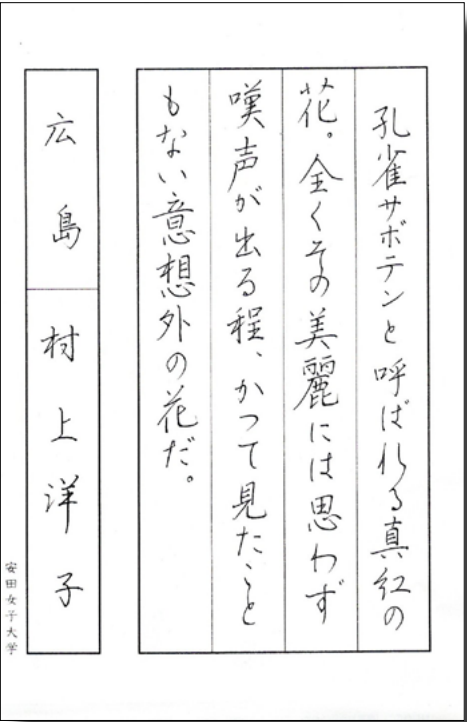 孔雀サボテンと呼ばれる真紅の
花。全くその美麗には思わず
嘆声が出る程、かつて見たこと
もない意想外の花だ。
広島 村上洋子
安田女子大学